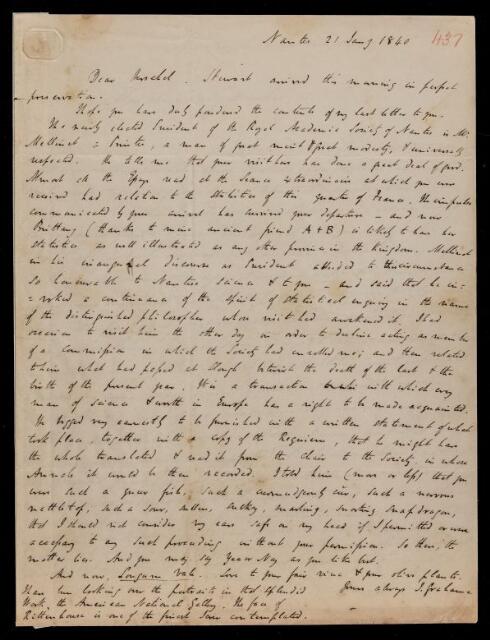 Nantes 21 Jany 1840
437
Dear Herschel. Stewart arrived this morning in perfect
preservation.
Hope you have duly pondered the contents of my last letter to you.
The newly elected President of the Royal Academic Society of Nantes is Mr
Mellinet = Printer, a man of great merit & great modesty, & universally
respected. He tells me that your visit here has done a great deal of good.
Almost all the Essays read, at the Seance extraordinaire at which you were
received had relation to the statistics of this quarter of France. The impulse
communicated by your arrival has survived your departure - and now
Brittany (thanks to mine ancient friend A + B) is likely to have her
statistics as well illustrated as any other province in the Kingdom. Mellinet
in his inaugural discourse as President alluded to this circumstance
so honourable to Nantes science & to you - and said that he in=
=voked a continuance of the spirit of statistical enquiry in the name
of the distinguished philosopher whose visit had awakened it. I had
occasion to visit him the other day in order to decline acting as member
of a commission in which the Society had enrolled me; and then related
to him what had passed at Slough betwixt the death of the last & the
birth of the present year. It is a transaction with which every
man of science & worth in Europe has a right to be made acquainted.
He begged very earnestly to be furnished with a written statement of what
took place, together with a copy of the Requiem, that he might have
the whole translated & read it from the Chair to the Society, in whose
Annals it would be then recorded. I told him (more or less) that you
were such a queer fish, such a curmudgeonly cur, such a nervous
, such a sour, sullen, sulky, snarling, snorting snapdragon,
that I should not consider my ears safe on my head if I permitted or were
accessary to any such proceeding without your permission. So then, the
matter lies. And you may say Yea or Nay as you like best.
And now, Longum Vale. Love to your fair vine & your olive plants.
I have been looking over the portraits in that splendid Yours always J. Grahame
Work the American National Gallery. The face of
Rittenhouse is one of the finest I ever contemplated.